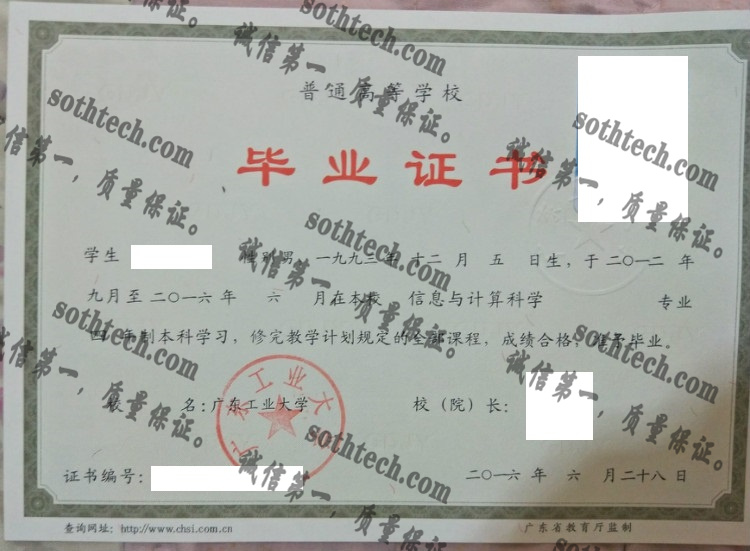 普通高等学校
毕业证书
学生 性别男 一九九三年十二月五日生，于二〇一二年
九月至二〇一六年六月在本校 信息与计算科学 专业
四年制本科学习，修完教学计划规定的全部课程，成绩合格，准予毕业。
校名：广东工业大学 校（院）长：
证书编号： 二〇一六年六月二十八日
查询网址：http://www.chsi.com.cn 广东省教育厅监制
广东工业大
sothtech.com
诚信第一，质量保证。
sothtech.com
诚信第一，质量保证。
sothtech.com
诚信第一，质量保证。
sothtech.com
诚信第一，质量保证。
sothtech.com
诚信第一，质量保证。
sothtech.com
诚信第一，质量保证。
sothtech.com
诚信第一，质量保证。